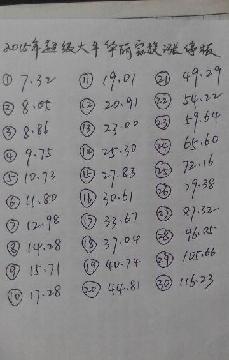 2015年超级大牛华丽家族涨停板
① 7.32
② 8.05
③ 8.86
④ 9.75
⑤ 10.73
⑥ 11.80
⑦ 12.98
⑧ 14.28
⑨ 15.71
⑩ 17.28
⑪ 19.01
⑫ 20.91
⑬ 23.00
⑭ 25.30
⑮ 27.83
⑯ 30.61
⑰ 33.67
⑱ 37.04
⑲ 40.74
⑳ 44.81
㉑ 49.29
㉒ 54.22
㉓ 59.64
㉔ 65.60
㉕ 72.16
㉖ 79.38
㉗ 87.32
㉘ 96.05
㉙ 105.66
㉚ 116.23